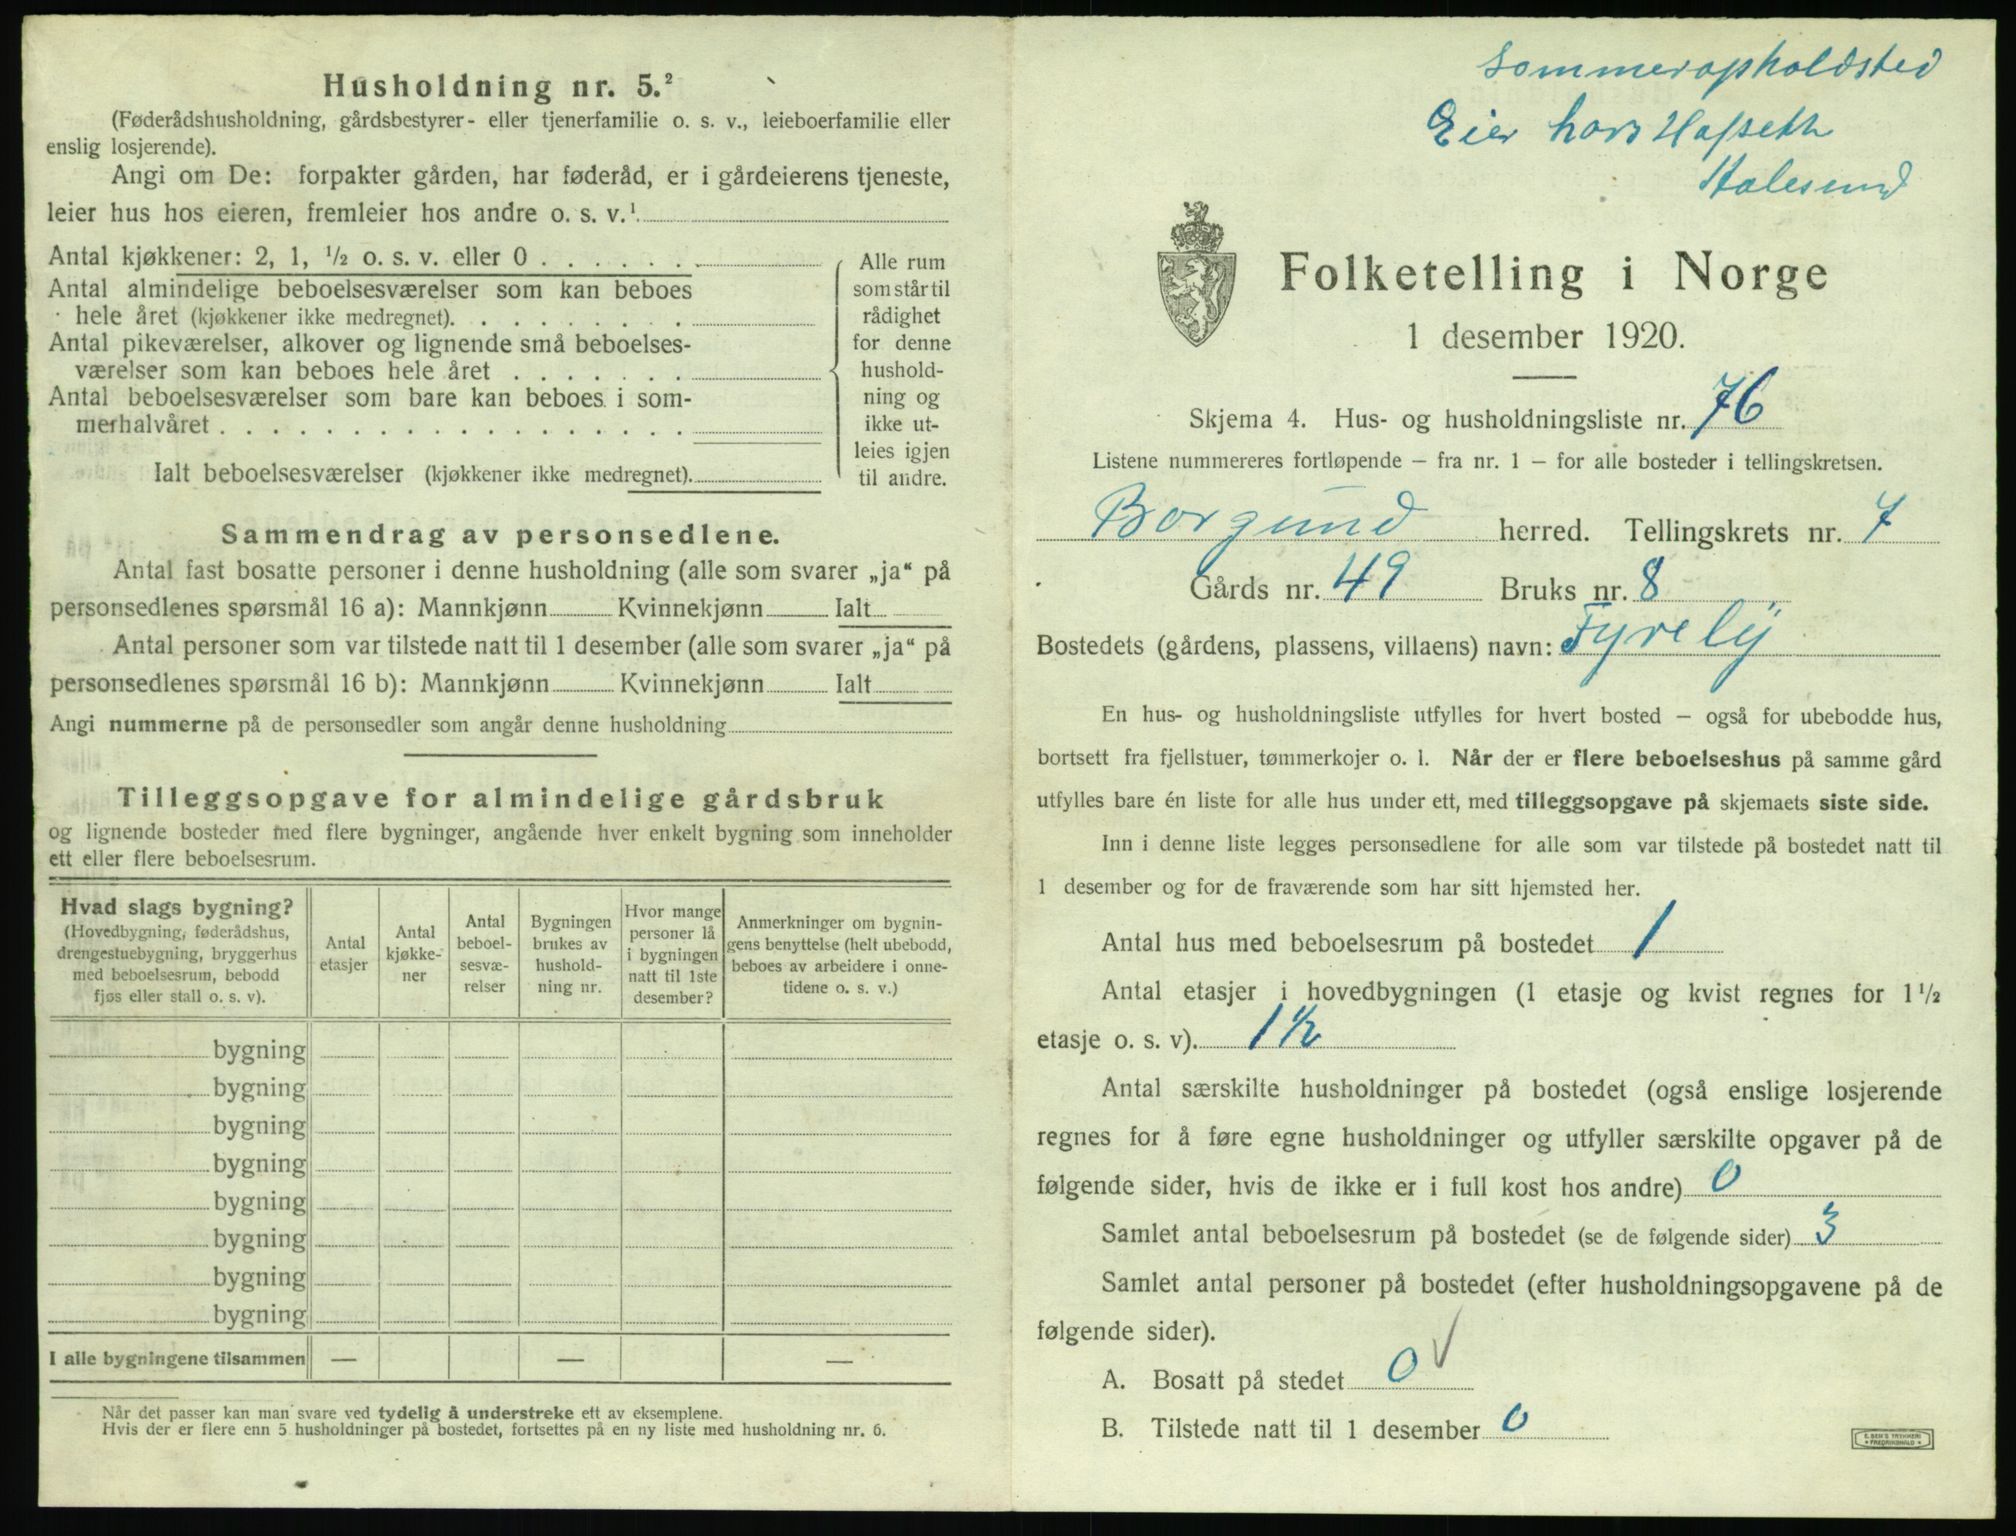 Husholdning nr. 5.²
(Føderådshusholdning, gårdsbestyrer- eller tjenerfamilie o. s. v., leieboerfamilie eller
enslig losjerende).
Angi om De: forpakter gården, har føderåd, er i gårdeierens tjeneste,
leier hus hos eieren, fremleier hos andre o. s. v.¹
Antal kjøkkener: 2, 1, ½ o. s. v. eller 0 . . . . . .
Antal almindelige beboelsesværelser som kan beboes
hele året (kjøkkener ikke medregnet). . . . . . . . .
Antal pikeværelser, alkover og lignende små beboelses-
værelser som kan beboes hele året . . . . . . .
Antal beboelsesværelser som bare kan beboes i som-
merhalvåret . . . . . . . . . . . . . . . . . .
Ialt beboelsesværelser (kjøkkener ikke medregnet).
Alle rum
som står til
rådighet
for denne
hushold-
ning og
ikke ut-
leies igjen
til andre.
Sammendrag av personsedlene.
Antal fast bosatte personer i denne husholdning (alle som svarer „ja“ på
personsedlenes spørsmål 16 a): Mannkjønn Kvinnekjønn Ialt
Antal personer som var tilstede natt til 1 desember (alle som svarer „ja“ på
personsedlenes spørsmål 16 b): Mannkjønn Kvinnekjønn Ialt
Angi nummerne på de personsedler som angår denne husholdning
Tilleggsopgave for almindelige gårdsbruk
og lignende bosteder med flere bygninger, angående hver enkelt bygning som inneholder
ett eller flere beboelsesrum.
Hvad slags bygning?
(Hovedbygning, føderådshus,
drengestuebygning, bryggerhus
med beboelsesrum, bebodd
fjøs eller stall o. s. v).
Antal
etasjer
Antal
kjøkke-
ner
Antal
beboel-
sesvæ-
relser
Bygningen
brukes av
hushold-
ning nr.
Hvor mange
personer lå
i bygningen
natt til 1ste
desember?
Anmerkninger om bygnin-
gens benyttelse (helt ubebodd,
beboes av arbeidere i onne-
tidene o. s. v.)
bygning
bygning
bygning
bygning
bygning
bygning
bygning
bygning
I alle bygningene tilsammen — — —
Når det passer kan man svare ved tydelig å understreke ett av eksemplene.
Hvis der er flere enn 5 husholdninger på bostedet, fortsettes på en ny liste med husholdning nr. 6.
Sommeropholdsted
Eier Lars Hafseth
Aalesund
Folketelling i Norge
1 desember 1920.
Skjema 4. Hus- og husholdningsliste nr. 76
Listene nummereres fortløpende – fra nr. 1 – for alle bosteder i tellingskretsen.
Borgund herred. Tellingskrets nr. 7
Gårds nr. 49 Bruks nr. 8
Bostedets (gårdens, plassens, villaens) navn: Fyrely
En hus- og husholdningsliste utfylles for hvert bosted – også for ubebodde hus,
bortsett fra fjellstuer, tømmerkojer o. l. Når der er flere beboelseshus på samme gård
utfylles bare én liste for alle hus under ett, med tilleggsopgave på skjemaets siste side.
Inn i denne liste legges personsedlene for alle som var tilstede på bostedet natt til
1 desember og for de fraværende som har sitt hjemsted her.
Antal hus med beboelsesrum på bostedet 1
Antal etasjer i hovedbygningen (1 etasje og kvist regnes for 1½
etasje o. s. v). 1½
Antal særskilte husholdninger på bostedet (også enslige losjerende
regnes for å føre egne husholdninger og utfyller særskilte opgaver på de
følgende sider, hvis de ikke er i full kost hos andre) 0
Samlet antal beboelsesrum på bostedet (se de følgende sider) 3
Samlet antal personer på bostedet (efter husholdningsopgavene på de
følgende sider).
A. Bosatt på stedet 0 ✓
B. Tilstede natt til 1 desember 0
E. SEM'S TRYKKERI
• FREDRIKSHALD •